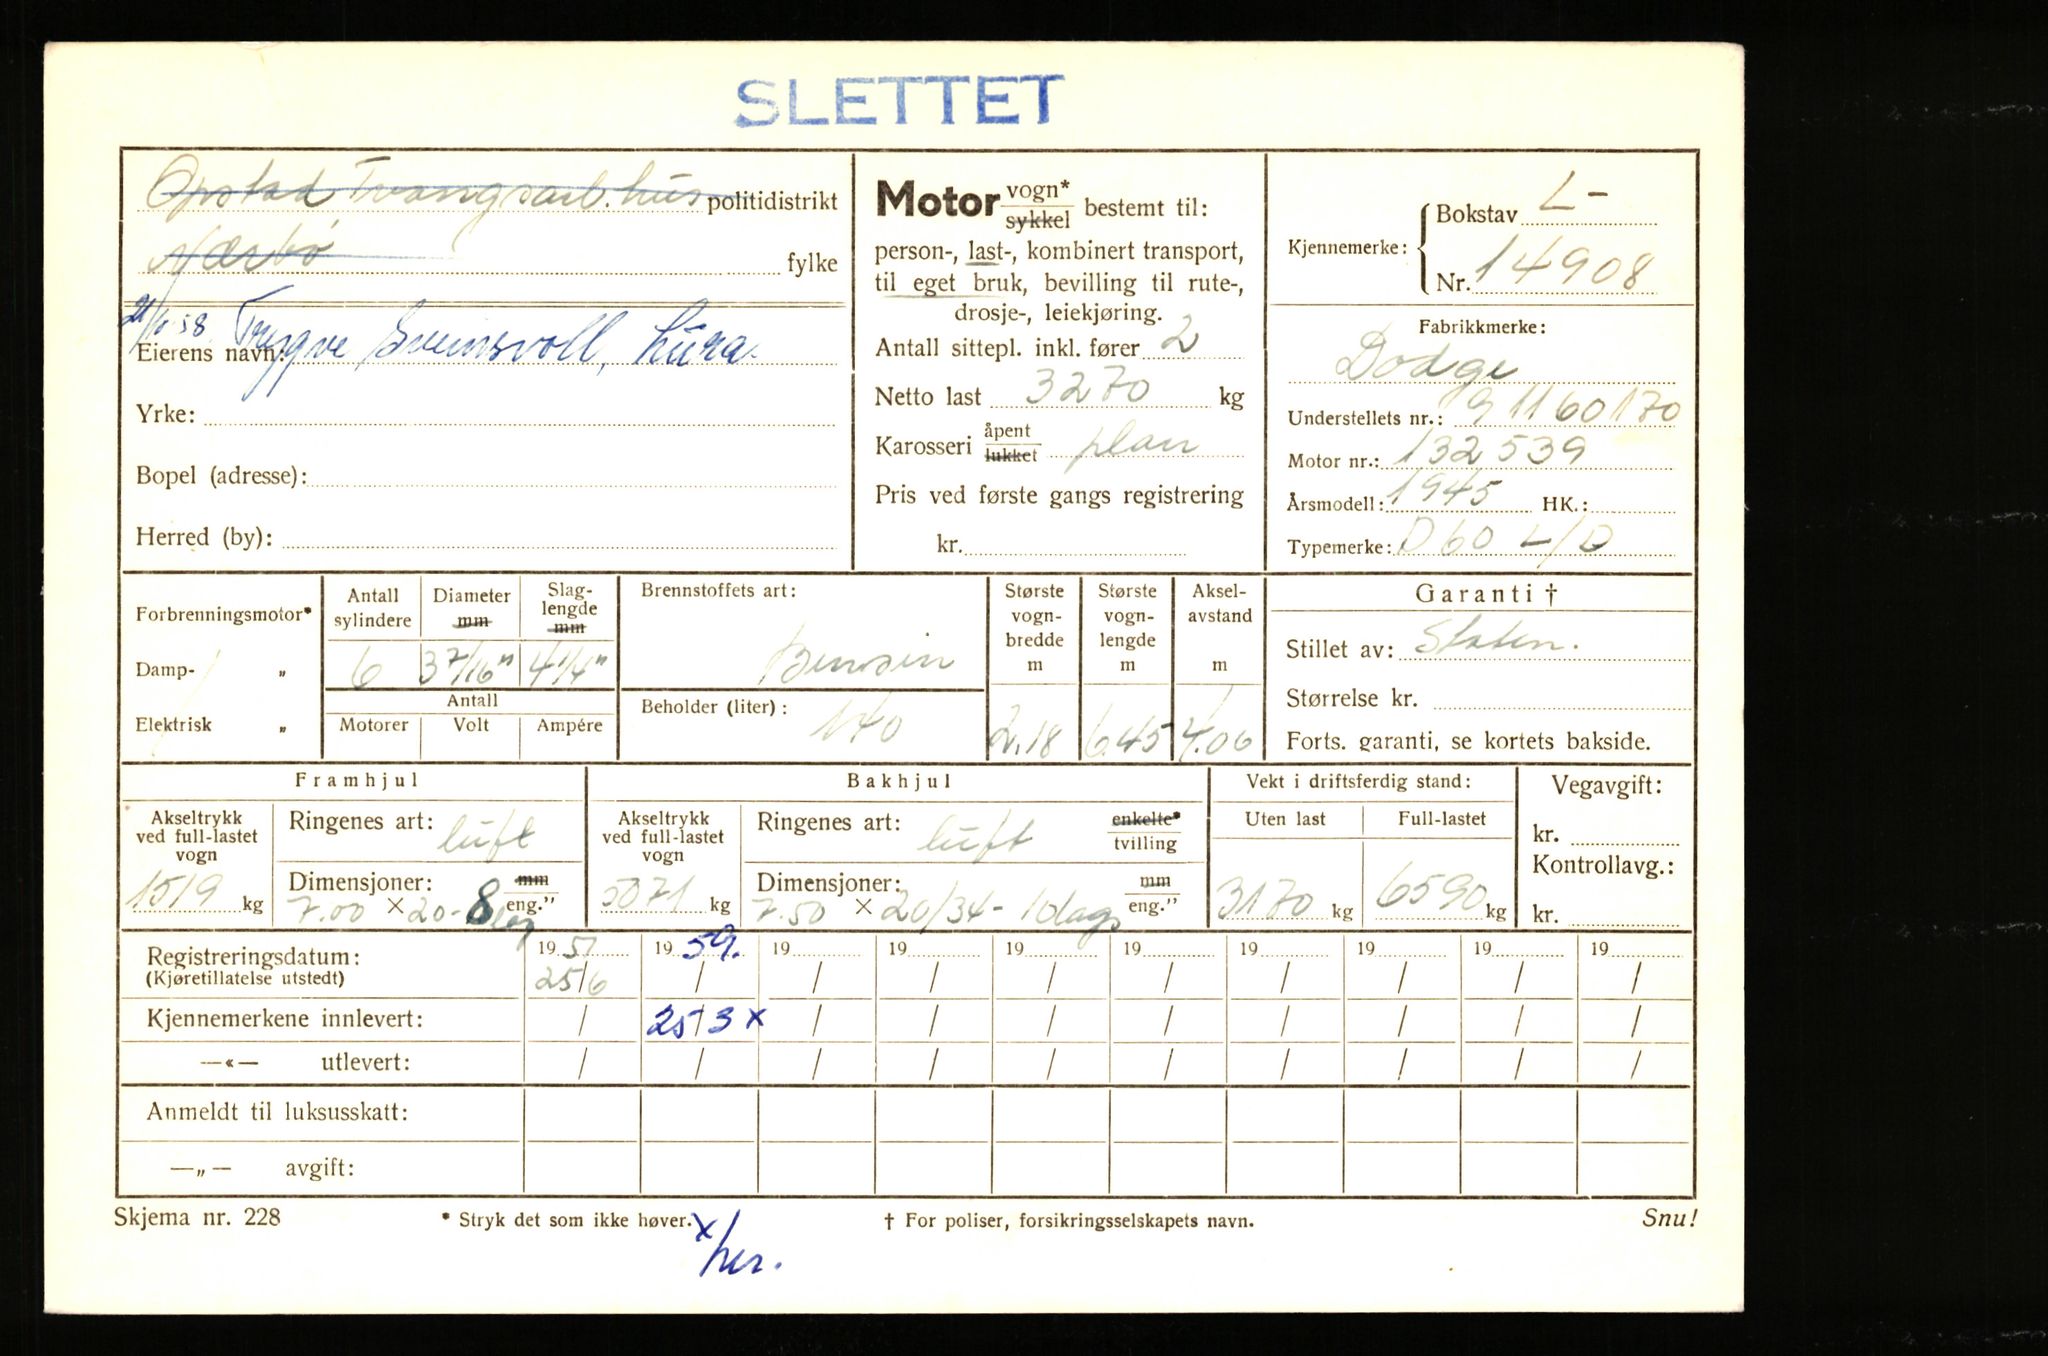 SLETTET
Opstad Tvangsarb.hus politidistrikt
Nærbø fylke
21/1-58. Trygve Sveinsvoll, Lura.
Eierens navn:
Yrke:
Bopel (adresse):
Herred (by):
Motor vogn* / sykkel bestemt til:
person-, last-, kombinert transport,
til eget bruk, bevilling til rute-,
drosje-, leiekjøring.
Antall sittepl. inkl. fører 2
Netto last 3270 kg
Karosseri åpent / lukket plan
Pris ved første gangs registrering
kr.
Kjennemerke: Bokstav L-
Nr. 14908
Fabrikkmerke:
Dodge
Understellets nr.: 91160170
Motor nr.: 132539
Årsmodell: 1945 HK.:
Typemerke: D 60 L/D
Forbrenningsmotor*
Damp- „
Elektrisk „
Antall sylindere 6
Diameter mm 3 7/16"
Slag-lengde mm 4 1/4"
Antall
Motorer Volt Ampére
Brennstoffets art:
Bensin
Beholder (liter):
140
Største vogn-bredde m 2.18
Største vogn-lengde m 6.45
Aksel-avstand m 4.06
Garanti †
Stillet av: Staten.
Størrelse kr.
Forts. garanti, se kortets bakside.
Framhjul
Akseltrykk ved full-lastet vogn 1519 kg
Ringenes art: luft
Dimensjoner: mm / eng."
7.00 x 20 - 8 lag
Bakhjul
Akseltrykk ved full-lastet vogn 5071 kg
Ringenes art: luft enkelte* / tvilling
Dimensjoner: mm / eng."
7.50 x 20/34 - 10 lags
Vekt i driftsferdig stand:
Uten last Full-lastet
3170 kg 6590 kg
Vegavgift:
kr.
Kontrollavg.:
kr.
Registreringsdatum: 1951 1959. 19 19 19 19 19 19 19 19
(Kjøretillatelse utstedt) 25/6 / / / / / / / / /
Kjennemerkene innlevert: / 25/3 x / / / / / / / /
—«— utlevert: / / / / / / / / / /
Anmeldt til luksusskatt:
—„— avgift:
Skjema nr. 228 * Stryk det som ikke høver. † For poliser, forsikringsselskapets navn. Snu!
x/her.